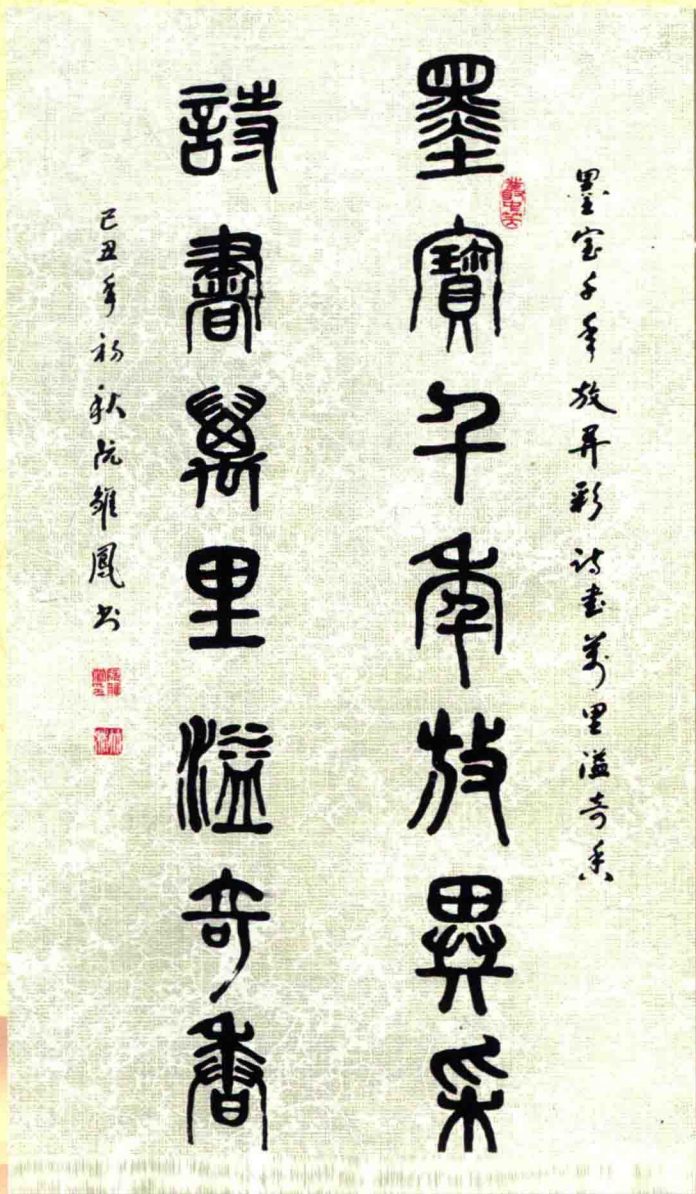 墨宝千年放异彩诗书万里溢奇香
墨寶千年放異采
詩書萬里溢奇香
己丑年初秋阮雄鳳书